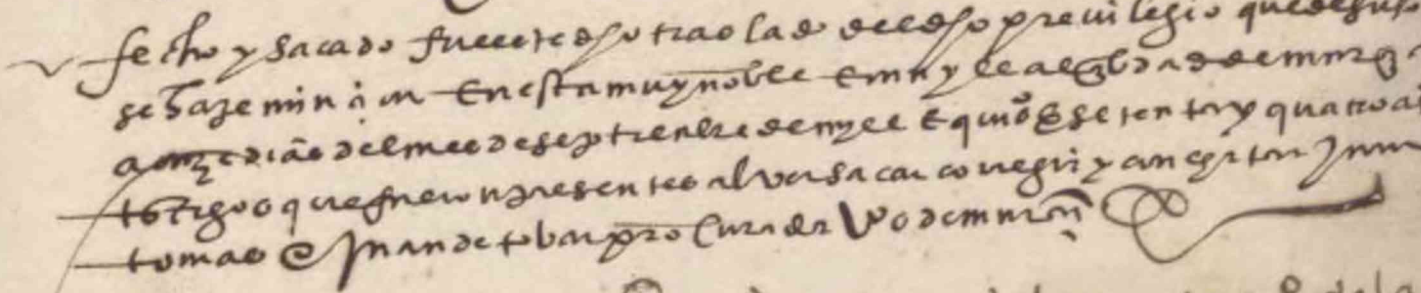 fecho y sacado fue este dho traslado del dho previlegio que desuso
se haze minçion En esta muy noble E muy leal çibdad de murçia
a onze dias del mes de setienbre de myll E quios E setenta y quatro a
testigos que fueron presentes al ver sacar corregir y conçertar Juan
tomas E Juan de tobar procurador vos de murçia